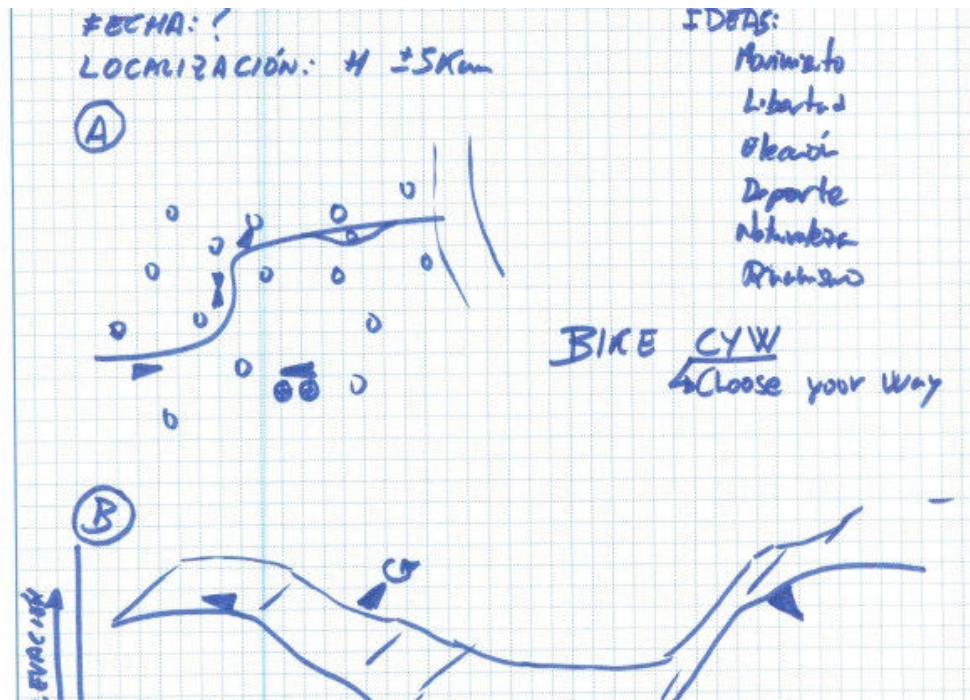 FECHA: ?
LOCALIZACIÓN: H ±5Km
A
IDEAS:
Movimiento
Libertad
Elección
Deporte
Naturaleza
Dinamismo
BIKE CYW
Choose your Way
B
ELEVACIÓN